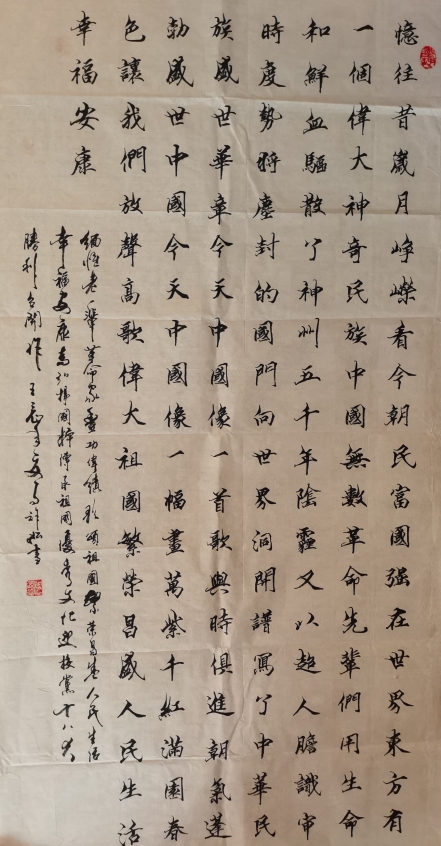 憶往昔歲月崢嶸看今朝民富國强在世界東方有
一個偉大神奇民族中國無數革命先輩們用生命
和鮮血驅散了神州五千年陰霾又以超人膽識审
時度勢將塵封的國門向世界洞開譜寫了中華民
族盛世華章今天中國像一首歌與時俱進朝氣蓬
勃盛世中國今天中國像一幅畫萬紫千紅滿園春
色讓我們放聲高歌偉大祖國繁榮昌盛人民生活
幸福安康
緬懷老一輩革命家豐功偉績歌頌祖國繁荣昌盛人民生活
幸福安康為弘揚國粹傳承祖國優秀文化迎接黨十八大
勝利召開作王